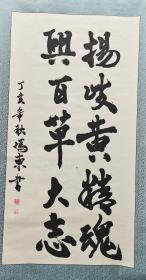 揚岐黄精魂
興百草大志
丁亥年秋馮東書